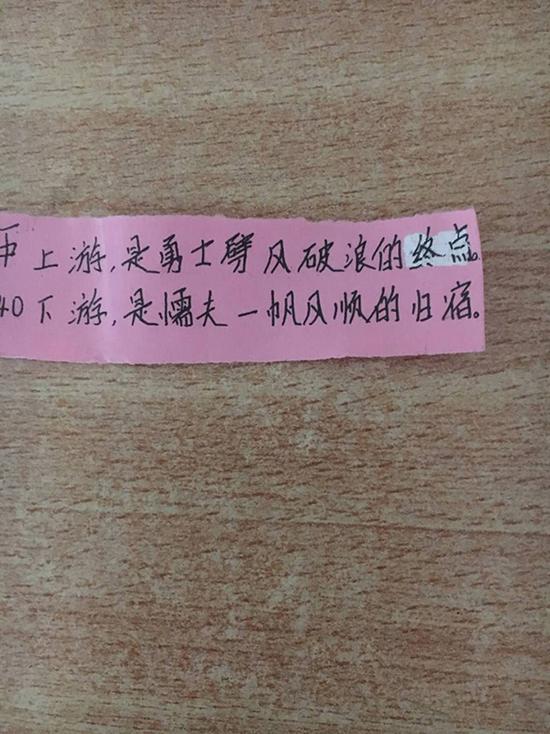 上游,是勇士劈风破浪的终点。
40下游,是懦夫一帆风顺的归宿。